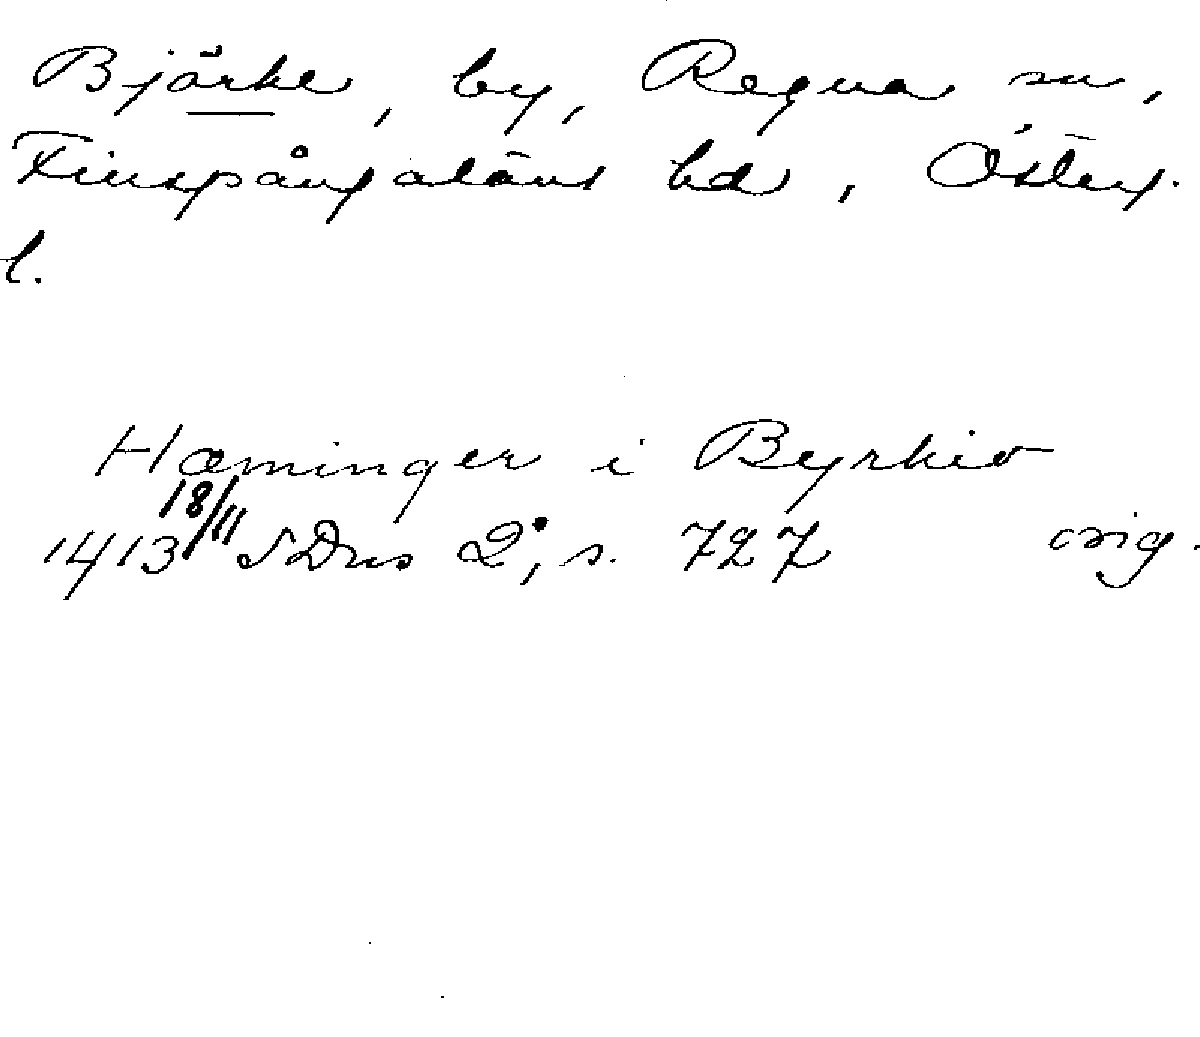 Bjärke, by, Regna sn,
Finspångaläns hd, Österg.
l.
Hæminger i Byrkio
1413 18/11 SDns 2, s. 727 orig.